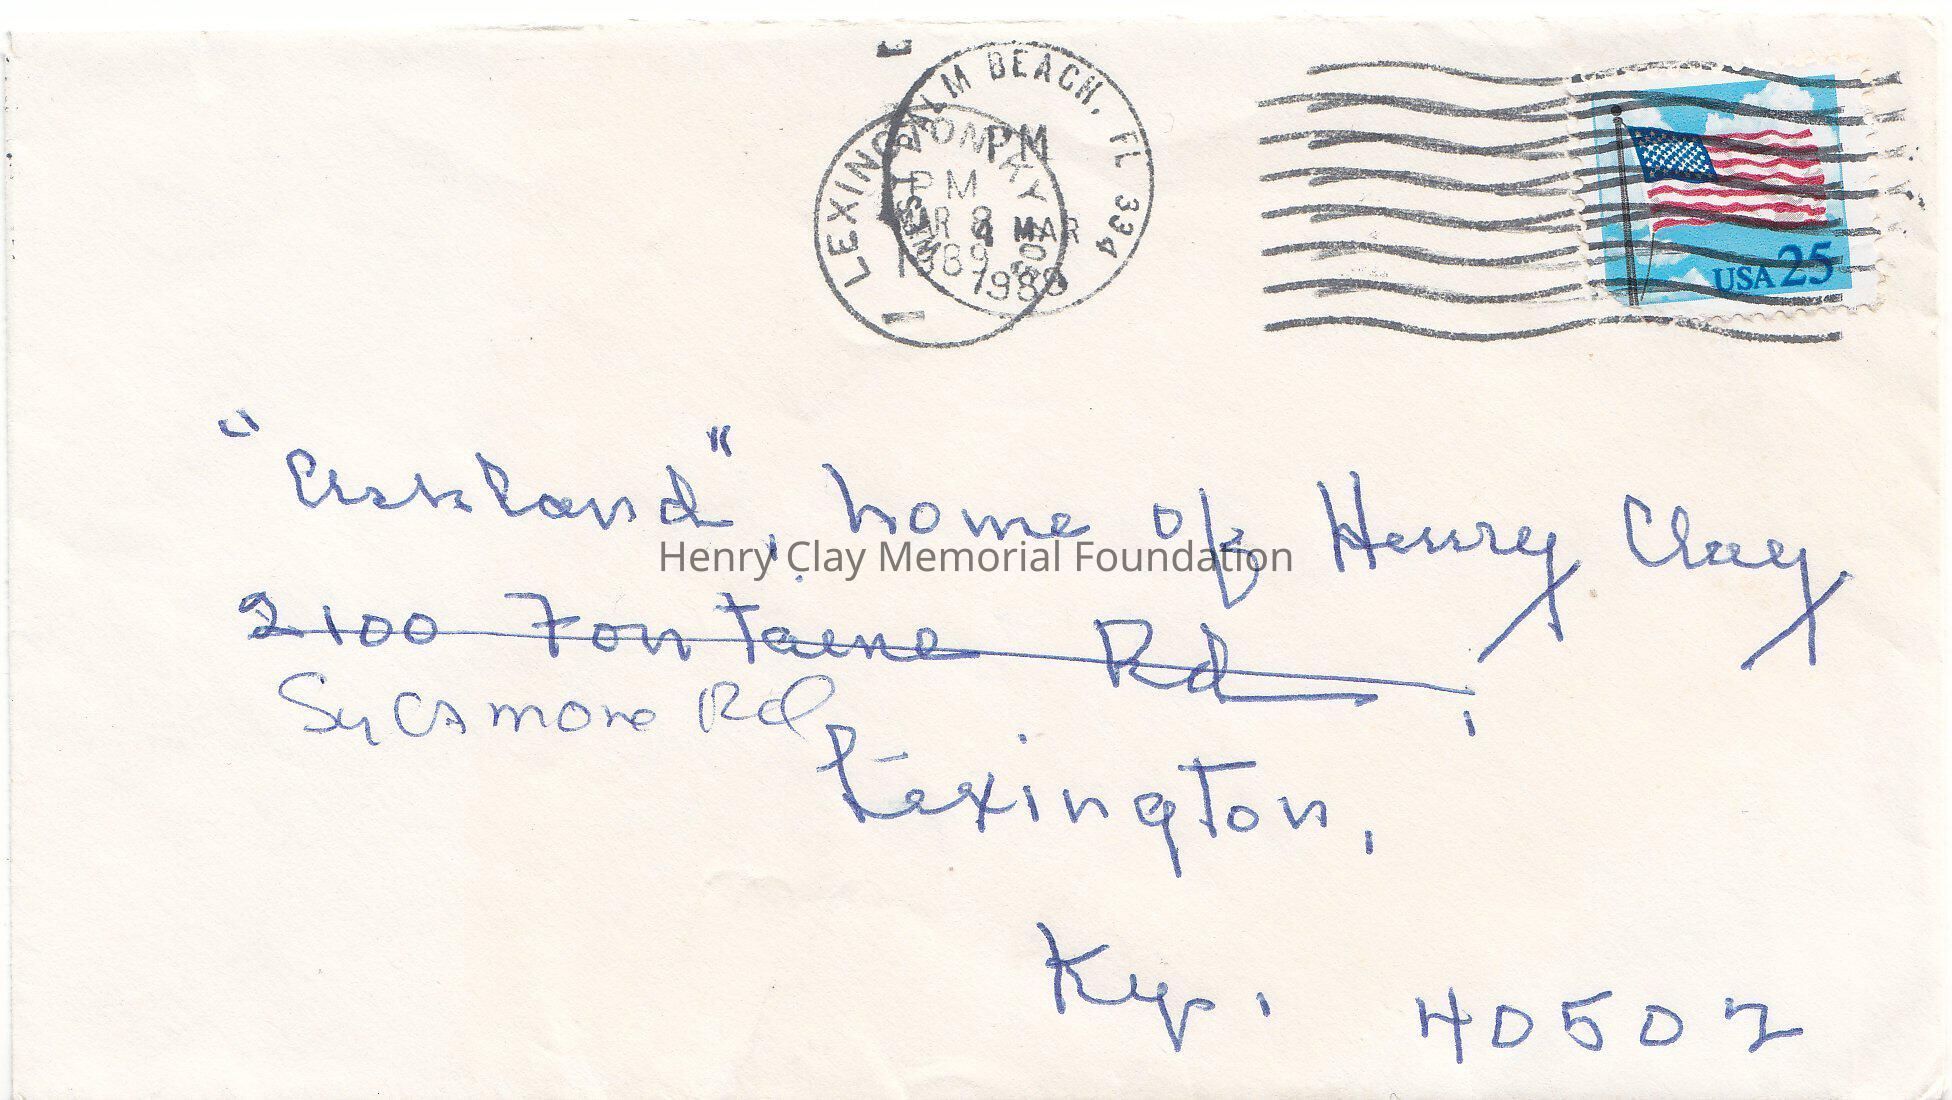 WEST PALM BEACH, FL 334
PM
4 MAR
1989
LEXINGTON KY
PM
MAR 8
1989
USA 25
"Ashland", home of Henry Clay
Henry Clay Memorial Foundation
2100 Fontaine Rd,
Sycamore Rd
Lexington,
Ky. 40502